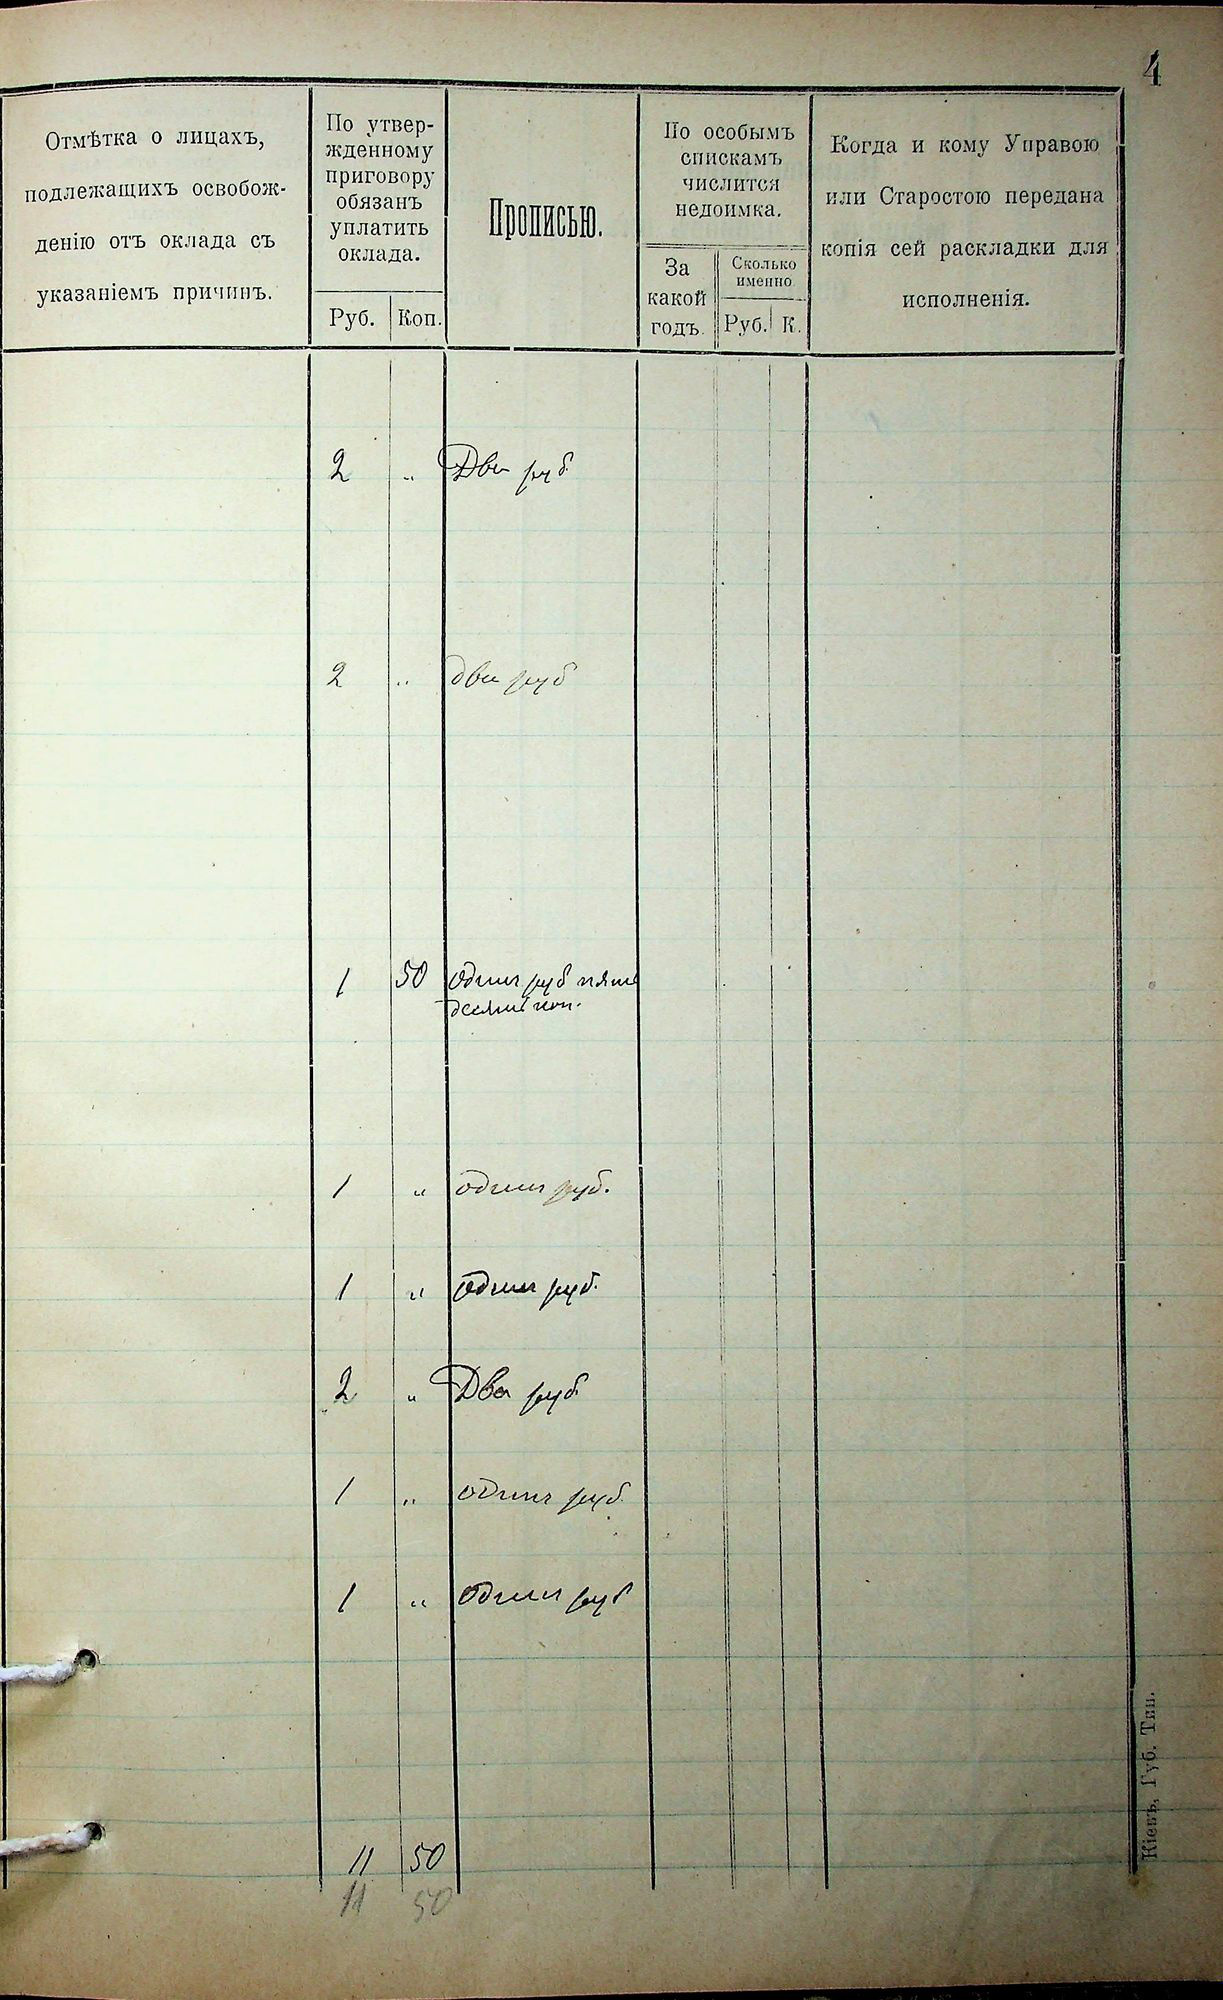 4
Отмѣтка о лицахъ,
подлежащихъ освобож-
денію отъ оклада съ
указаніемъ причинъ.
По утвер-
жденному
приговору
обязанъ
уплатить
оклада.
Руб. Коп.
Прописью.
По особымъ
спискамъ
числится
недоимка.
За
какой
годъ.
Сколько
именно
Руб. К.
Когда и кому Управою
или Старостою передана
копія сей раскладки для
исполненія.
2 " Два руб
2 " два руб
1 50 один руб пять
десять коп.
1 " один руб.
1 " один руб.
2 " Два руб
1 " один руб
1 " один руб
11 50
11 50
Кіевъ, Губ. Тип.